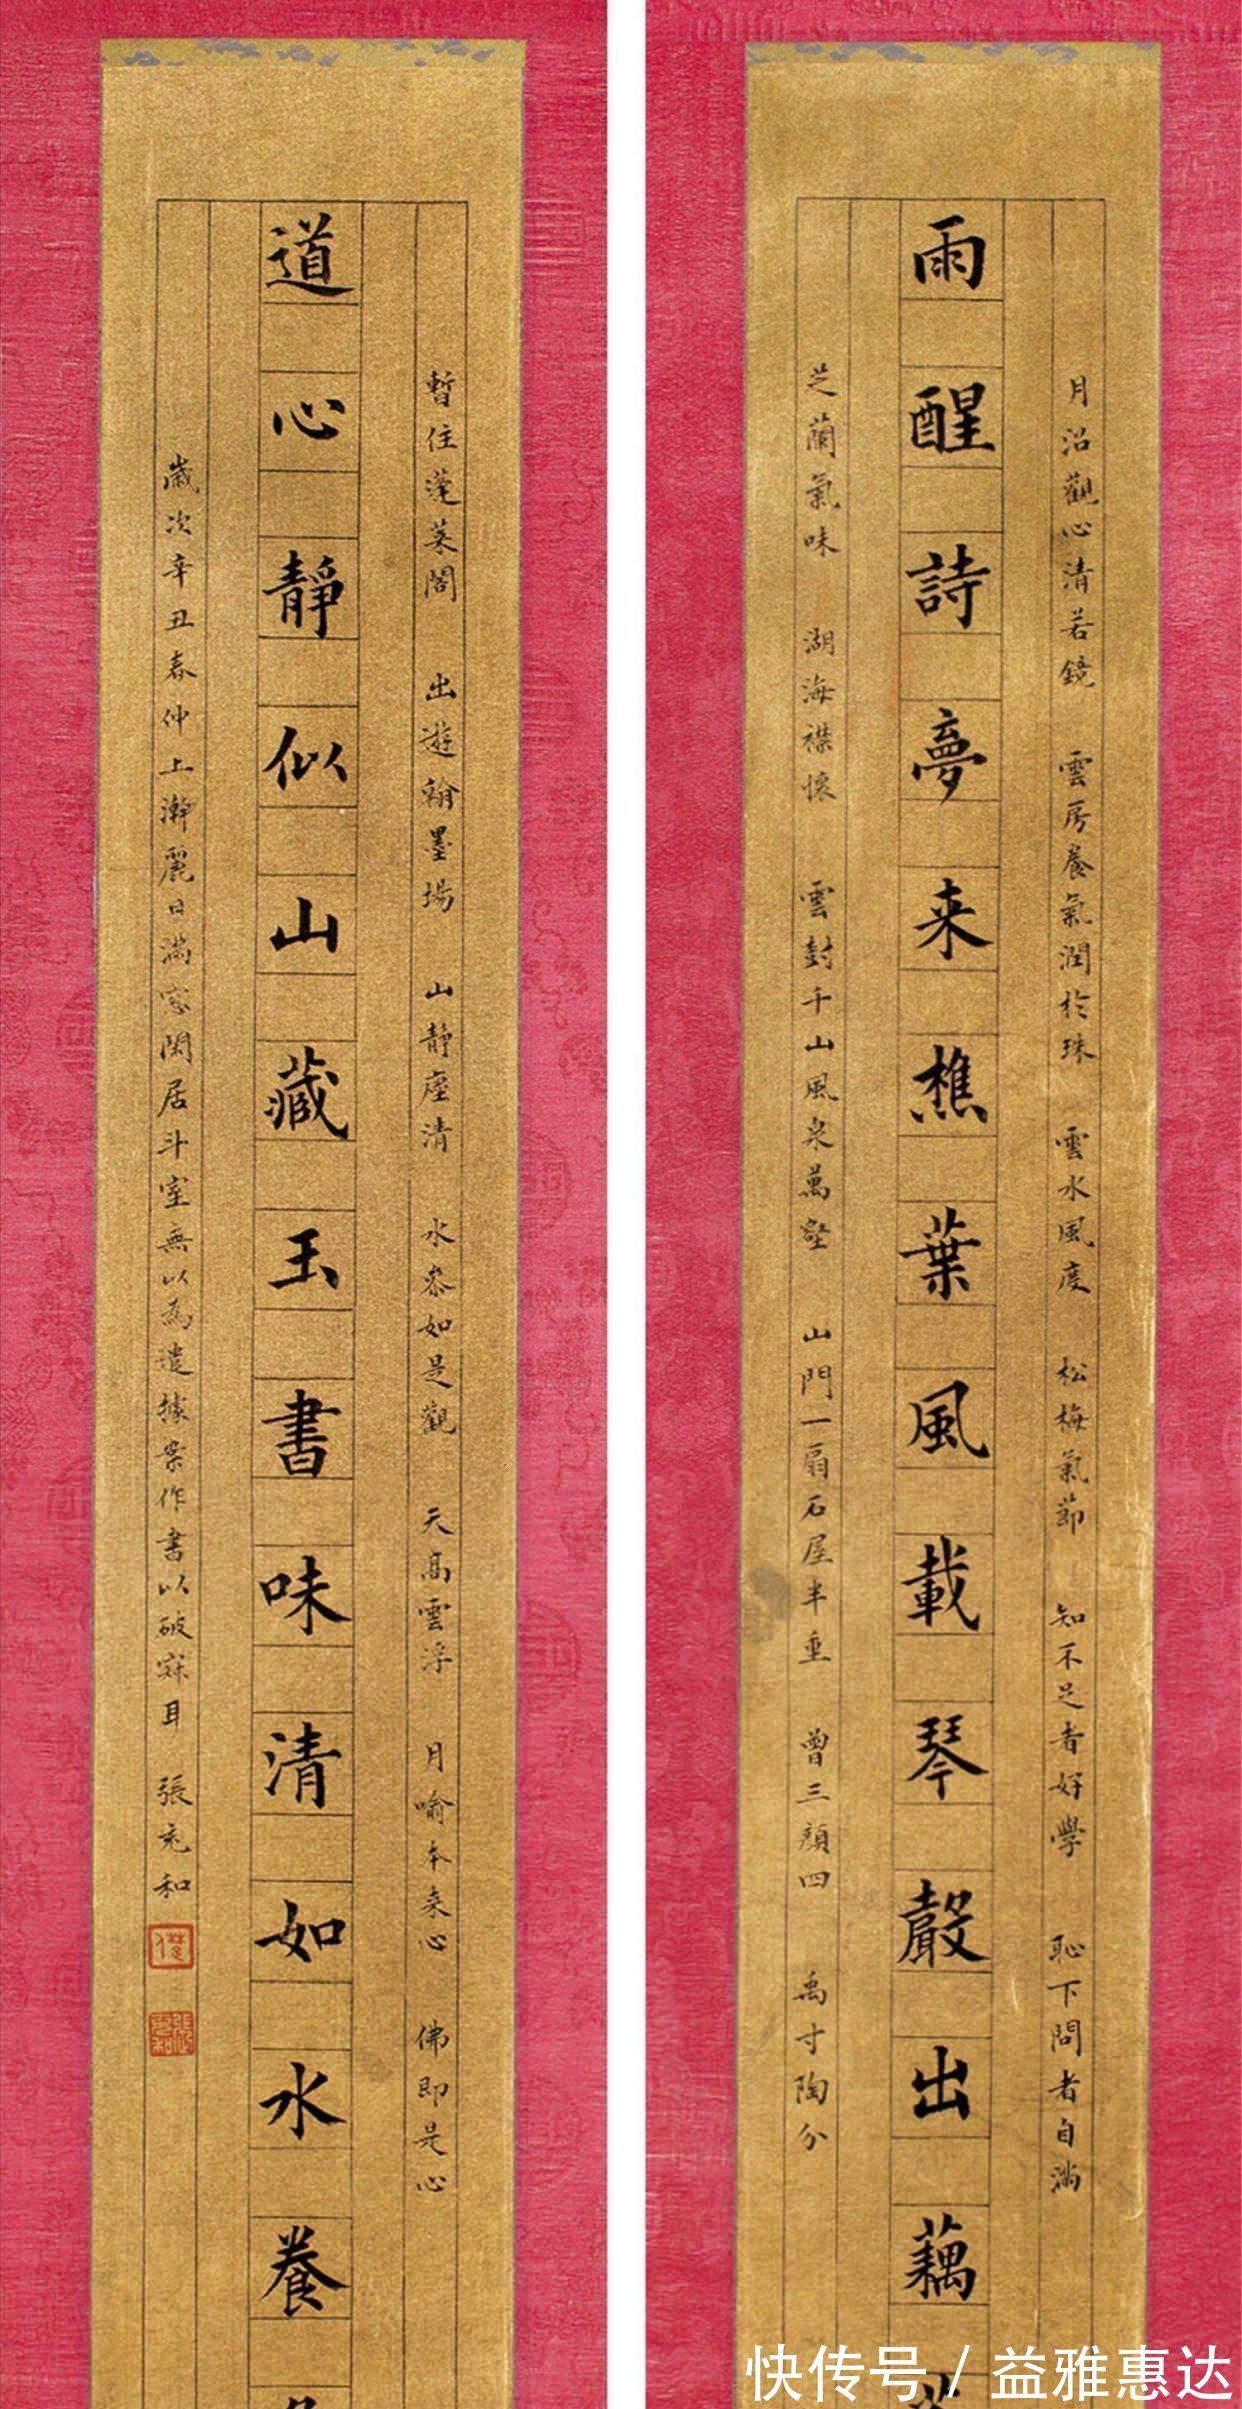 月沼觀心清若鏡 雲房養氣潤於珠 雲水風度 松梅氣節 知不足者好學 恥下問者自滿
雨醒詩夢来樵葉風載琴聲出藕
芝蘭氣味 湖海襟懷 雲封千山風泉萬壑 山門一扇石屋半垂 曾三顏四 禹寸陶分
暫住蓬莱閣 出遊翰墨場 山靜塵清 水叅如是觀 天高雲浮 月喻本来心 佛即是心
道心靜似山藏玉書味清如水養魚
歲次辛丑春仲上澣麗日滿窓閑居斗室無以為遣據案作書以破寐耳 張充和
快传号 / 益雅惠达